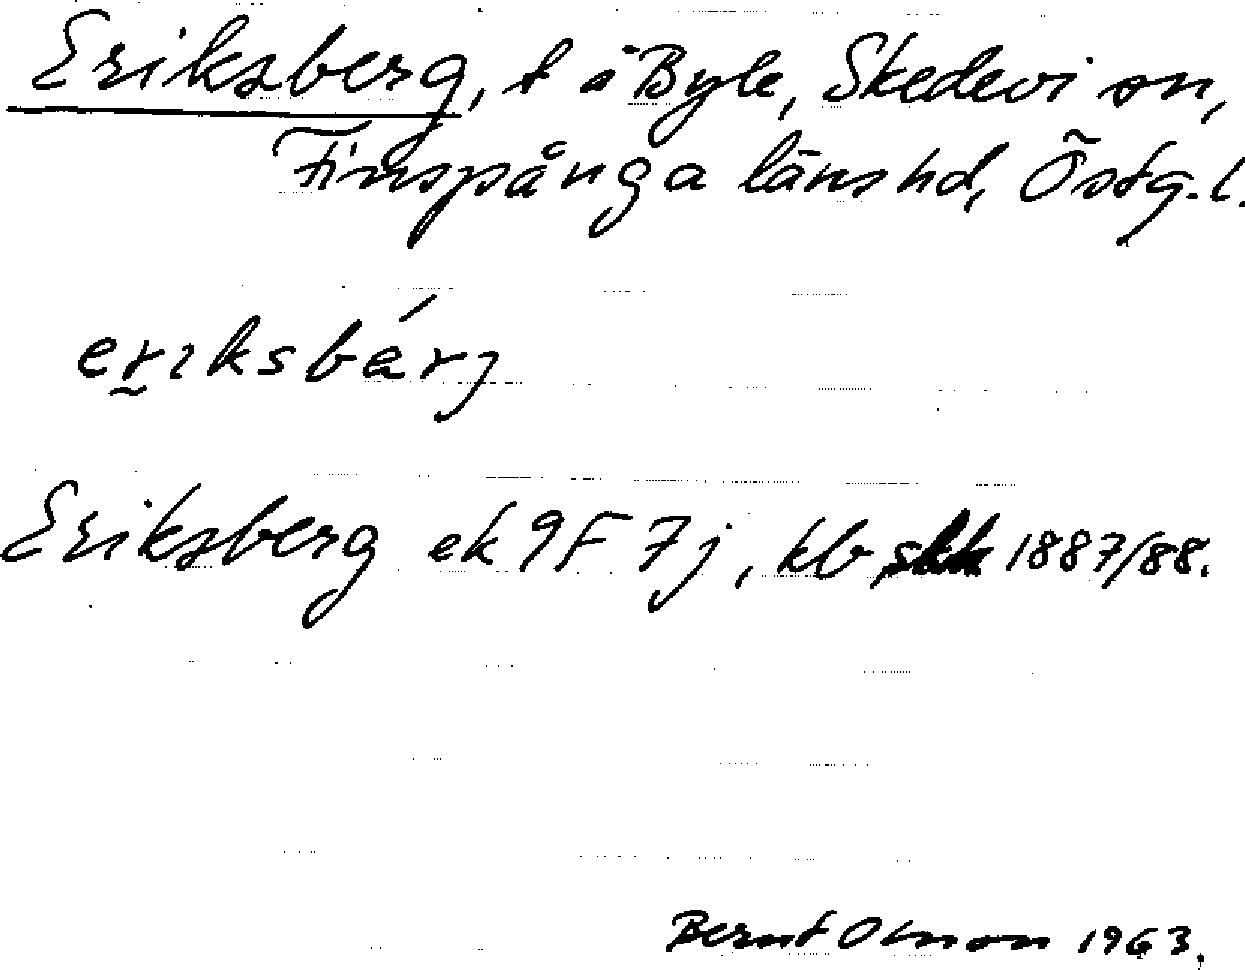 Eriksberg, t å Byle, Skedevi sn,
Finspånga länshd, Östg.l.
eriksbärj
Eriksberg ek 9F 7j, kb 1887/88.
Bernt Olsson 1963.